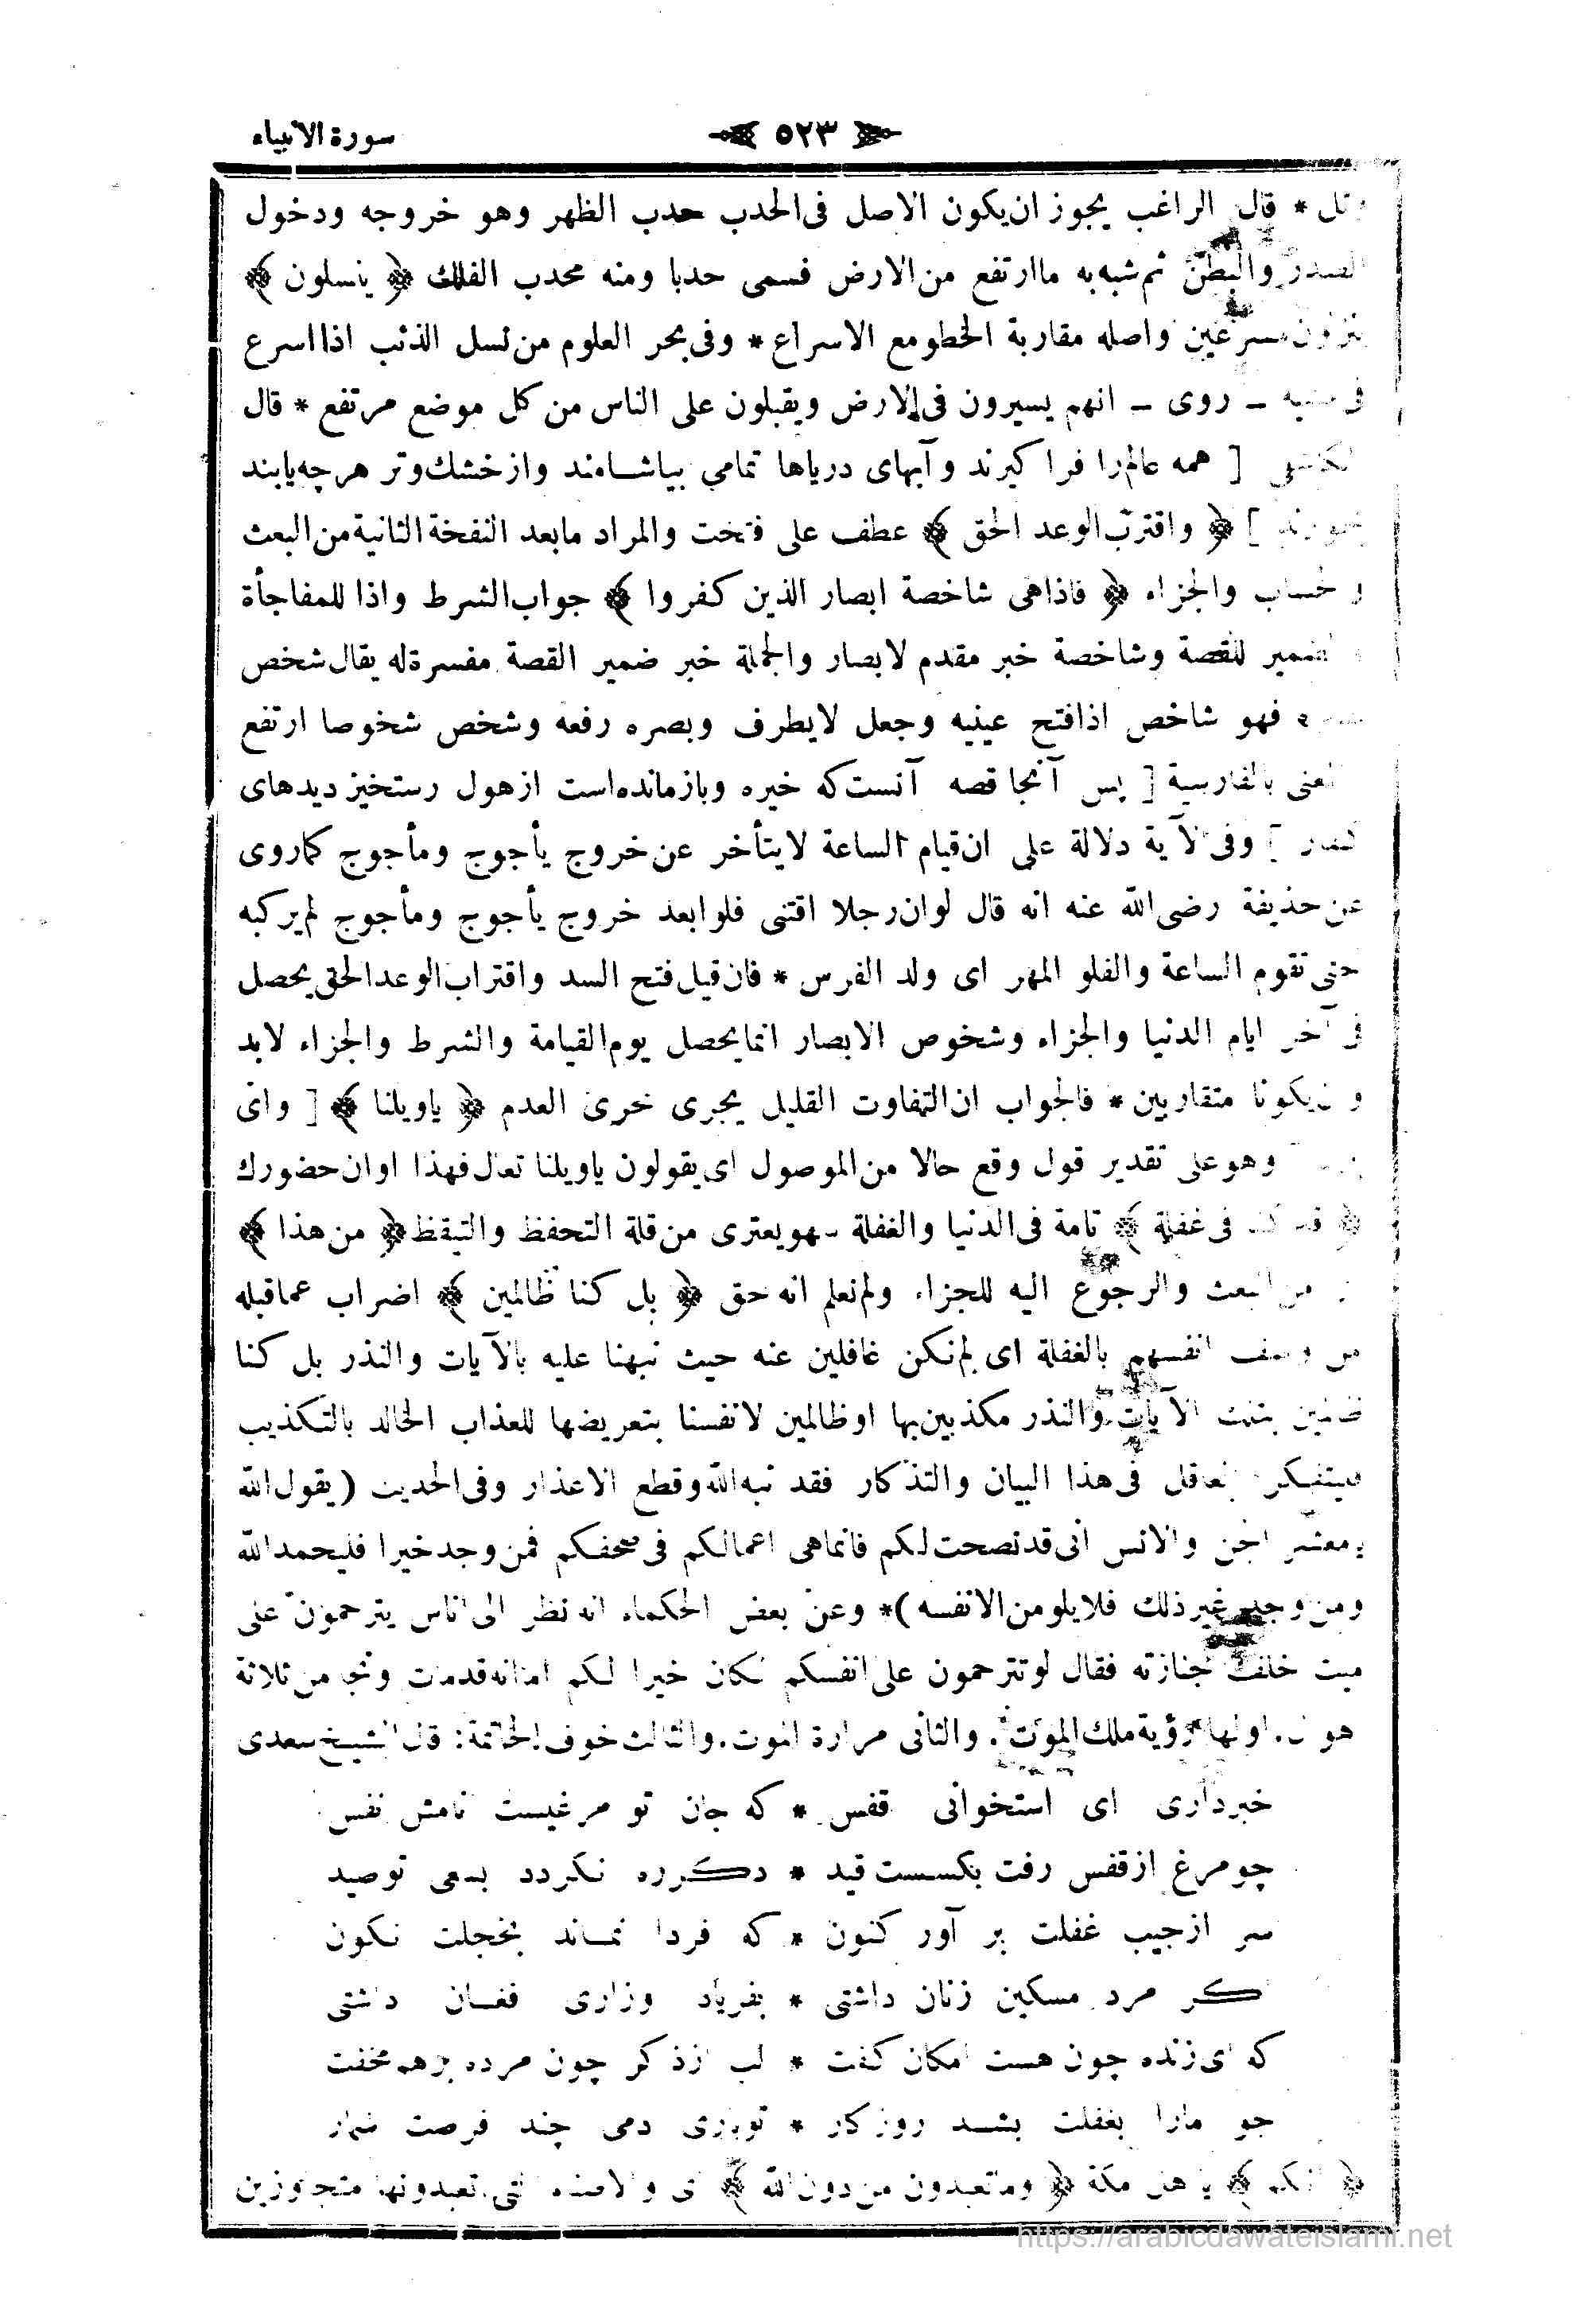 سورة الانبياء
﴿ ٥٢٣ ﴾
وتل * قال الراغب يجوز ان يكون الاصل فى الحدب حدب الظهر وهو خروجه ودخول
الصدر والبطن ثم شبه به ما ارتفع من الارض فسمى حدبا ومنه محدب الفلك ﴿ ينسلون ﴾
مسرعين واصله مقاربة الخطو مع الاسراع * وفى بحر العلوم من نسل الذئب اذا اسرع
فى ـ روى ـ انهم يسيرون فى الارض ويقبلون على الناس من كل موضع مرتفع * قال
[ همه عالم را فرا كيرند وآبهاى درياها تمامى بياشامند واز خشك وتر هر چه يابند
] ﴿ واقترب الوعد الحق ﴾ عطف على فتحت والمراد ما بعد النفخة الثانية من البعث
والحساب والجزاء ﴿ فاذا هى شاخصة ابصار الذين كفروا ﴾ جواب الشرط واذا للمفاجأة
الضمير للقصة وشاخصة خبر مقدم لابصار والجملة خبر ضمير القصة مفسرة له يقال شخص
فهو شاخص اذا فتح عينيه وجعل لا يطرف وبصره رفعه وشخص شخوصا ارتفع
بالفارسية [ پس آنجا قصه آنست كه خيره وبازمانده است از هول رستخيز ديدهاى
] وفى الآية دلالة على ان قيام الساعة لا يتأخر عن خروج يأجوج ومأجوج كما روى
عن حذيفة رضى الله عنه انه قال لو ان رجلا اقتنى فلوا بعد خروج يأجوج ومأجوج لم يركبه
حتى تقوم الساعة والفلو المهر اى ولد الفرس * فان قيل فتح السد واقتراب الوعد الحق يحصل
فى آخر ايام الدنيا والجزاء وشخوص الابصار انما يحصل يوم القيامة والشرط والجزاء لابد
وان يكونا متقاربين * فالجواب ان التفاوت القليل يجرى مجرى العدم ﴿ ياويلنا ﴾ [ واى
وهو على تقدير قول وقع حالا من الموصول اى يقولون ياويلنا تعال فهذا اوان حضورك
﴿ قد كنا فى غفلة ﴾ تامة فى الدنيا والغفلة سهو يعترى من قلة التحفظ والتيقظ ﴿ من هذا ﴾
من البعث والرجوع اليه للجزاء ولم نعلم انه حق ﴿ بل كنا ظالمين ﴾ اضراب عما قبله
من وصف انفسهم بالغفلة اى لم نكن غافلين عنه حيث نبهنا عليه بالآيات والنذر بل كنا
ظالمين بتلك الآيات والنذر مكذبين بها او ظالمين لانفسنا بتعريضها للعذاب الخالد بالتكذيب
فليتفكر العاقل فى هذا البيان والتذكار فقد نبه الله وقطع الاعذار وفى الحديث ( يقول الله
يا معشر الجن والانس انى قد نصحت لكم فانما هى اعمالكم فى صحفكم فمن وجد خيرا فليحمد الله
ومن وجد غير ذلك فلا يلومن الا نفسه )* وعن بعض الحكماء انه نظر الى اناس يترحمون على
ميت خلف جنازته فقال لو تترحمون على انفسكم لكان خيرا لكم اما انه قدمات ونجا من ثلاثة
اهوال. اولها رؤية ملك الموت. والثانى مرارة الموت. والثالث خوف الخاتمة: قال الشيخ سعدى
خبر دارى اى استخوانى قفس * كه جان تو مرغيست نامش نفس
چو مرغ از قفس رفت بكسست قيد * دكرره نكردد بسعى تو صيد
سر از جيب غفلت بر آور كنون * كه فردا نماند بخجلت نكون
كر مرد مسكين زبان داشتى * بفرياد وزارى فغان داشتى
كه اى زنده چون هست امكان كفت * لب از ذكر چون مرده برهم مخفت
چو مارا بغفلت بشد روزكار * تو بارى دمى چند فرصت شمار
﴿ انكم ﴾ يا اهل مكة ﴿ وما تعبدون من دون الله ﴾ اى والاصنام التى تعبدونها متجاوزين
https://arabicdawateislami.net